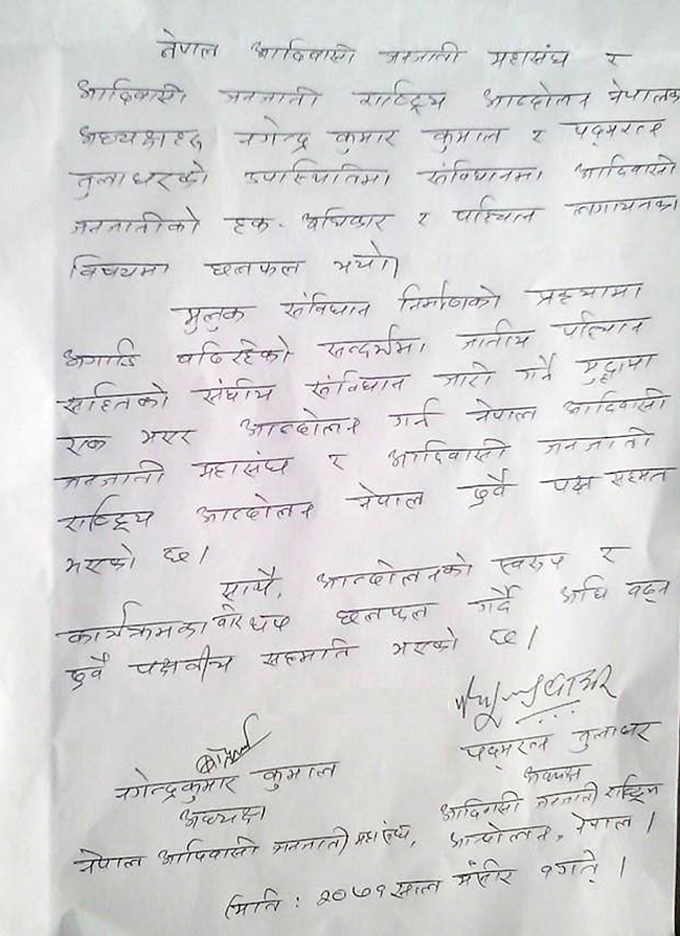 नेपाल आदिवासी जनजाती महासंघ र
आदिवासी जनजाती राष्ट्रिय आन्दोलन नेपालका
अध्यक्षहरु नगेन्द्र कुमार कुमाल र पद्मरत्न
तुलाधरको उपास्थितिमा संविधानमा आदिवासी
जनजातीको हक. अधिकार र पहिचान लगायतका
विषयमा छलफल भयो।
मुलुक संविधान निर्माणको प्रकृयामा
अगाडि बढिरहेको सन्दर्भमा जातीय पहिचान
सहितको संघीय संविधान जारी गर्ने मुद्दामा
एक भएर आन्दोलन गर्न नेपाल आदिवासी
जनजाती महासंघ र आदिवासी जनजाती
राष्ट्रिय आन्दोलन नेपाल दुवै पक्ष सहमत
भएको छ।
साथै, आन्दोलनको स्वरुप र
कार्यक्रमका बारे थप छलफल गर्दै अघि बढ्न
दुवै पक्षवीच सहमति भएको छ।
पद्मरत्न तुलाधर
नगेन्द्रकुमार कुमाल
अध्यक्ष
अध्यक्ष
आदिवासी जनजाती राष्ट्रिय
नेपाल आदिवासी जनजाती महासंघ, आन्दोलन, नेपाल।
मिति : २०७१ साल मंसीर १ गते।